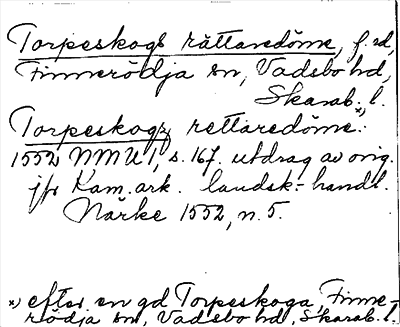 Torpeskogs rättaredöme, f.d,
Finnerödja sn, Vadsbo hd,
Skarab. l.
Torpeskogz rettaredöme. x)
1552 NMU 1, s. 167. utdrag av orig.
jfr Kam. ark. landsk.-handl.
Närke 1552, n. 5.
x) efter en gd Torpeskoga, Finne-
rödja sn, Vadsbo hd, Skarab. l.